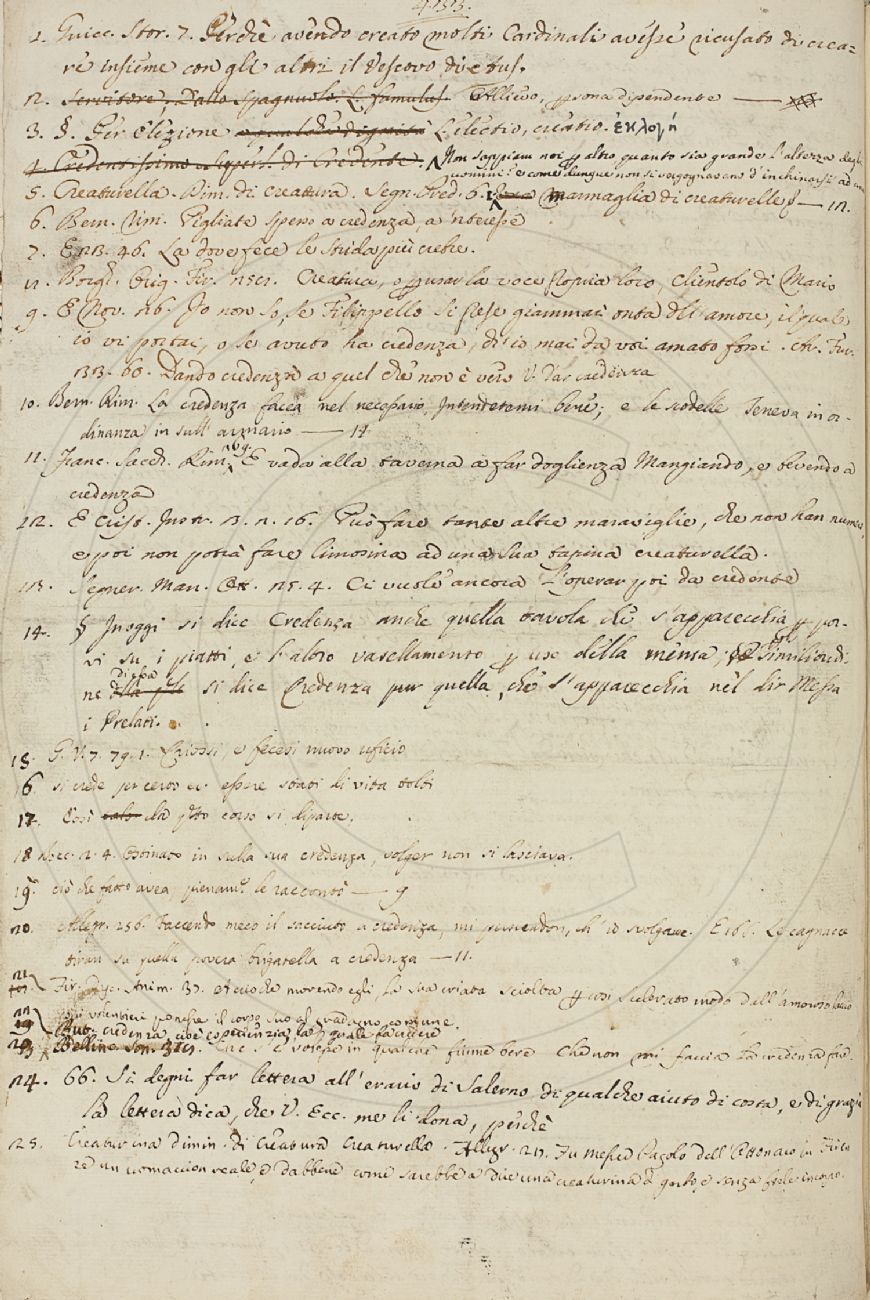 1. Guicc. Stor. 7. Perchè avendo creato molti Cardinali avesse ricusato di crea-
re insieme con gli altri il Vescovo di
12. Servitore, Dallo Spagnuolo. L. famulus. Allievo, psona dipendente
3. §. Per Elezione L. electio, creatio. ἐκλογή
4. Credentissimo Superl. di Credente. Non sappiam noi p altro quanto sia grande l'altezza degli
uomini? e come dunque non si vergognavano d'inchinarsi ad una
5. Creaturella. Dim. di Creatura. Segn. Pred. 6. marmaglia di creaturelle? — 12.
6. Bern. Rim. Pigliate spesso a credenza, a 'nteresse
7. E 113. 46. La dove fece le strida più crebre.
Borgh. Orig. Fir. Creatura, o p usar la voce propria loro, Clientolo di Mario
9. E Nov. 26. Io non so, se Filippello si prese giammai onta dell'amore, il quale
io vi portai, o se avuto ha credenza, ch'io mai da voi amato fossi. Ar. Fur.
60. Dando credenza a quel che non è vero V. Dar credenza
10. Bern. Rim. La credenza facea nel necessario, Intendetemi bene; e le scodelle Teneva in or-
dinanza in sull'armario — 14
11. Franc. Sacch. Rim. E vada alla taverna a far doglienza Mangiando, e bevendo a
credenza
12. E Crist. Instr. 3. n. 16. Può fare tante altre maraviglie, che non han numero,
e poi non potrà fare limosina ad una sua tapina creaturella.
13. Segner. Man. Ott. 25. 4. Ci vuole ancora l'operar poi da credente
14. § Inoggi si dice Credenza anche quella tavola che s'apparecchia p por-
vi su i piatti, e l'altro vasellamento p uso della mensa; E similmdi-
ne si dice Credenza pur quella, che s'apparecchia nel dir Messa
i Prelati.
15. G. V. 7. 79. 1. Criossi, e fecesi nuovo uficio
16 si crede per certo essere stati di vita tolti
17. Così da qsto corso si diparte.
18 2. 4. Ostinato in sulla sua credenza, volger non si lasciava.
19. ciò che fatto avea, pienamte. le raccontò — 9
20. Allegr. 256. Facendo meco il sacciuto a credenza, mi pervendon, ch'io svolgare. E 166. Le cagnacce
tiran su quella povera brigatella a credenza — 11.
21 Fir. Disc. Anim. 37. Acciocchè morendo egli, la sua criata sciolta p così scelerato modo dell'amoroso laccio
22 volentieri ponesse il corpo suo al guadagno comune.
Aut. credenza, cioè esperienza, la quale faccisse
23 Bellinc. Son. 319. Che s'e' volesse in qualche fiume bere Che non mi faccia la credenza far.
24. 66. Si degni far lettera all'erario di Salerno di qualche aiuto di costa, e di grazia
La lettera dica, che V. Ecc. me li dona, perchè
25. Creaturina dimin. di Creatura Creaturella. Allegr. 211. Fu Messer Pagolo dell'Ottonaio in Fiore
re un uomaccion reale, e dabbene come sarebbe a dire una creaturina d gusto, e senza fiele in corpo.